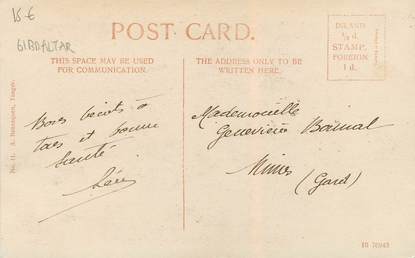 15 €
GIBRALTAR
POST CARD.
THIS SPACE MAY BE USED
FOR COMMUNICATION.
THE ADDRESS ONLY TO BE
WRITTEN HERE.
INLAND
½ d.
STAMP,
FOREIGN
1 d.
Bons baisers à
tous et bonne
Santé
Mademoiselle
Geneviève
Nimes
(Gard)
No. 11. A. Benzaquen, Tangier.